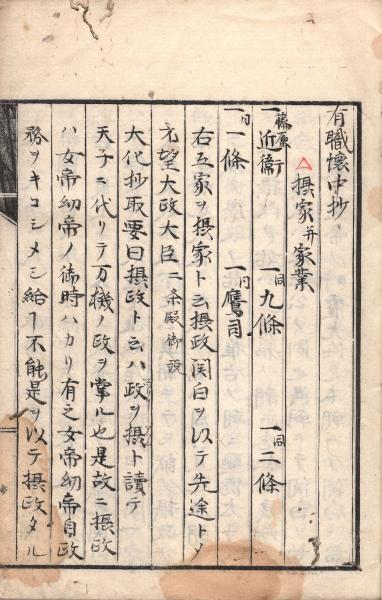 有職懐中抄
△摂家并家業
一藤原近衛 一同九條 一同二條
一同一條 一同鷹司
右五家ヲ摂家ト云摂政関白ヲ以テ先途トメ
大政大臣ニ条殿御説
大化抄取要曰摂政ト云ハ政ヲ摂ト讀テ
天子ニ代リテ万機ノ政ヲ掌ル也是故ニ摂政
ハ女帝幼帝ノ御時ハカリ有之女帝幼帝自政
務ヲキコシメシ給フ不能是ヲ以テ摂政タル